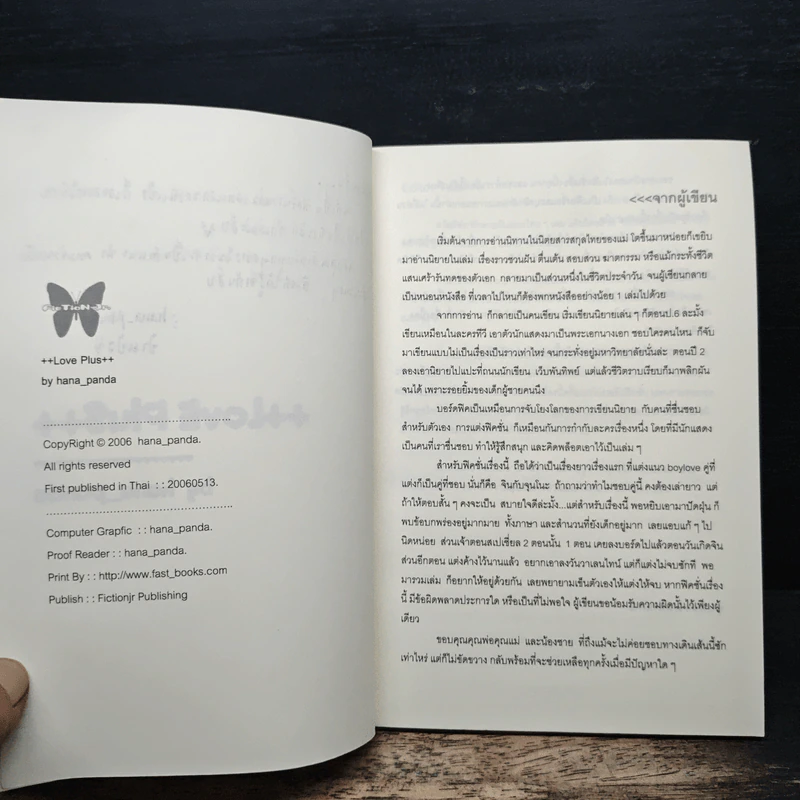 FicTioN-Jr
++Love Plus++
by hana_panda
CopyRight © 2006 hana_panda.
All rights reserved
First published in Thai : : 20060513.
Computer Grapfic : : hana_panda.
Proof Reader : : hana_panda.
Print By : : http://www.fast_books.com
Publish : : Fictionjr Publishing
<<<จากผู้เขียน
เริ่มต้นจากการอ่านนิทานในนิตยสารสกุลไทยของแม่ โตขึ้นมาหน่อยก็เขยิบ
มาอ่านนิยายในเล่ม เรื่องราวชวนฝัน ตื่นเต้น สอบสวน ฆาตกรรม หรือแม้กระทั่งชีวิต
แสนเศร้ารันทดของตัวเอก กลายมาเป็นส่วนหนึ่งในชีวิตประจำวัน จนผู้เขียนกลาย
เป็นหนอนหนังสือ ที่เวลาไปไหนก็ต้องพกหนังสืออย่างน้อย 1 เล่มไปด้วย
จากการอ่าน ก็กลายเป็นคนเขียน เริ่มเขียนนิยายเล่น ๆ ก็ตอนป.6 ละมั้ง
เขียนเหมือนในละครทีวี เอาตัวนักแสดงมาเป็นพระเอกนางเอก ชอบใครคนไหน ก็จับ
มาเขียนแบบไม่เป็นเรื่องเป็นราวเท่าไหร่ จนกระทั่งอยู่มหาวิทยาลัยนั่นล่ะ ตอนปี 2
ลองเอานิยายไปแปะที่ถนนนักเขียน เว็บพันทิพย์ แต่แล้วชีวิตราบเรียบก็มาพลิกผัน
จนได้ เพราะรอยยิ้มของเด็กผู้ชายคนนึง
บอร์ดฟิคเป็นเหมือนการจับโยงโลกของการเขียนนิยาย กับคนที่ชื่นชอบ
สำหรับตัวเอง การแต่งฟิคชั่น ก็เหมือนกับการกำกับละครเรื่องหนึ่ง โดยที่มีนักแสดง
เป็นคนที่เราชื่นชอบ ทำให้รู้สึกสนุก และคิดพล็อตเอาไว้เป็นเล่ม ๆ
สำหรับฟิคชั่นเรื่องนี้ ถือได้ว่าเป็นเรื่องยาวเรื่องแรก ที่แต่งแนว boylove คู่ที่
แต่งก็เป็นคู่ที่ชอบ นั่นก็คือ จินกับจุนโนะ ถ้าถามว่าทำไมชอบคู่นี้ คงต้องเล่ายาว แต่
ถ้าให้ตอบสั้น ๆ คงจะเป็น สบายใจดีล่ะมั้ง...แต่สำหรับเรื่องนี้ พอหยิบเอามาปัดฝุ่น ก็
พบข้อบกพร่องอยู่มากมาย ทั้งภาษา และสำนวนที่ยังเด็กอยู่มาก เลยแอบแก้ ๆ ไป
นิดหน่อย ส่วนเจ้าตอนสเปเชี่ยล 2 ตอนนั้น 1 ตอน เคยลงบอร์ดไปแล้วตอนวันเกิดจิน
ส่วนอีกตอน แต่งค้างไว้นานแล้ว อยากเอาลงวันวาเลนไทน์ แต่ก็แต่งไม่จบซักที พอ
มารวมเล่ม ก็อยากให้อยู่ด้วยกัน เลยพยายามเข็นตัวเองให้แต่งให้จบ หากฟิคชั่นเรื่อง
นี้ มีข้อผิดพลาดประการใด หรือเป็นที่ไม่พอใจ ผู้เขียนขอน้อมรับความผิดนั้นไว้เพียงผู้
เดียว
ขอบคุณคุณพ่อคุณแม่ และน้องชาย ที่ถึงแม้จะไม่ค่อยชอบทางเดินเส้นนี้ซัก
เท่าไหร่ แต่ก็ไม่ขัดขวาง กลับพร้อมที่จะช่วยเหลือทุกครั้งเมื่อมีปัญหาใด ๆ